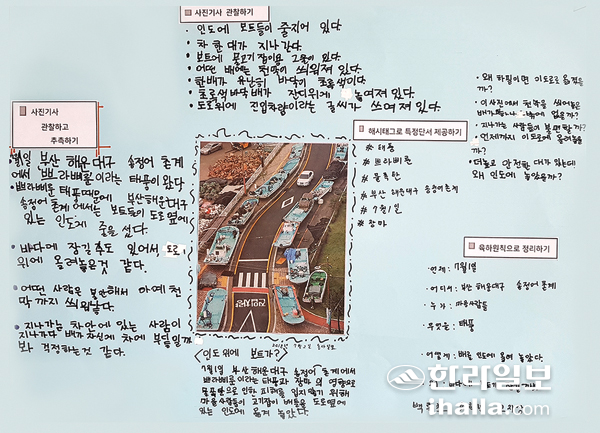 사진기사 관찰하기
• 인도에 보트들이 줄지어 있다.
• 차 한대가 지나간다.
• 보트에 물고기 잡이용 그물이 있다.
• 어떤 배에는 천막이 씌워져 있다.
• 한배가 유난히 바닥이 초록색이다.
• 초록색 바닥배가 잔디위에 놓여져 있다.
• 도로위에 진입차량이라는 글씨가 쓰여져 있다.
사진기사
관찰하고
추측하기
부산 해운대구 송정어 통계
에서 쁘라삐룬이라는 태풍이 왔다
• 쁘라삐룬 태풍때문에 부산해운대구
송정어 통계에서는 보트들이 도로옆에
있는 인도에 줄을 섰다.
• 바다에 잠길까봐 있어서 도로
위에 올려놓은것 같다.
• 어떤 사람은 불안해서 아예 천
막까지 씌워놨다.
• 지나가는 차안에 있는 사람이
지나가다 배가 자신의 차에 부딪힐까
봐 걱정하는것 같다.
해시태그로 특정단서 제공하기
# 태풍
# 쁘라삐룬
# 부산 해운대구 송정어 통계
# 7월 1일
# 장마
• 왜 하필이면 이도로로 옮겼을
까?
• 이사진에서 천막을 씌어놓은
• 지나가는 사람들이 불편할까?
• 언제까지 이도로에 올려놓을
까?
• 더넓고 안전한 대가 있는데
왜 인도에 놓았을까?
육하원칙으로 정리하기
• 언제: 7월 1일
• 어디서: 부산 해운대구 송정어 통계
• 누가: 마을사람들
• 무엇을: 태풍
• 어떻게: 배를 인도에 옮겨 놓았다.
<이도 위에 보트가?>
7월 1일 부산 해운대구 송정어 통계에서
쁘라삐룬이라는 태풍과 장마의 영향으로
인한 피해를 입지않기 위해
마을사람들이 고기잡이 배들을 도로옆에
있는 인도에 옮겨 놓았다.
한라일보
ihalla.com